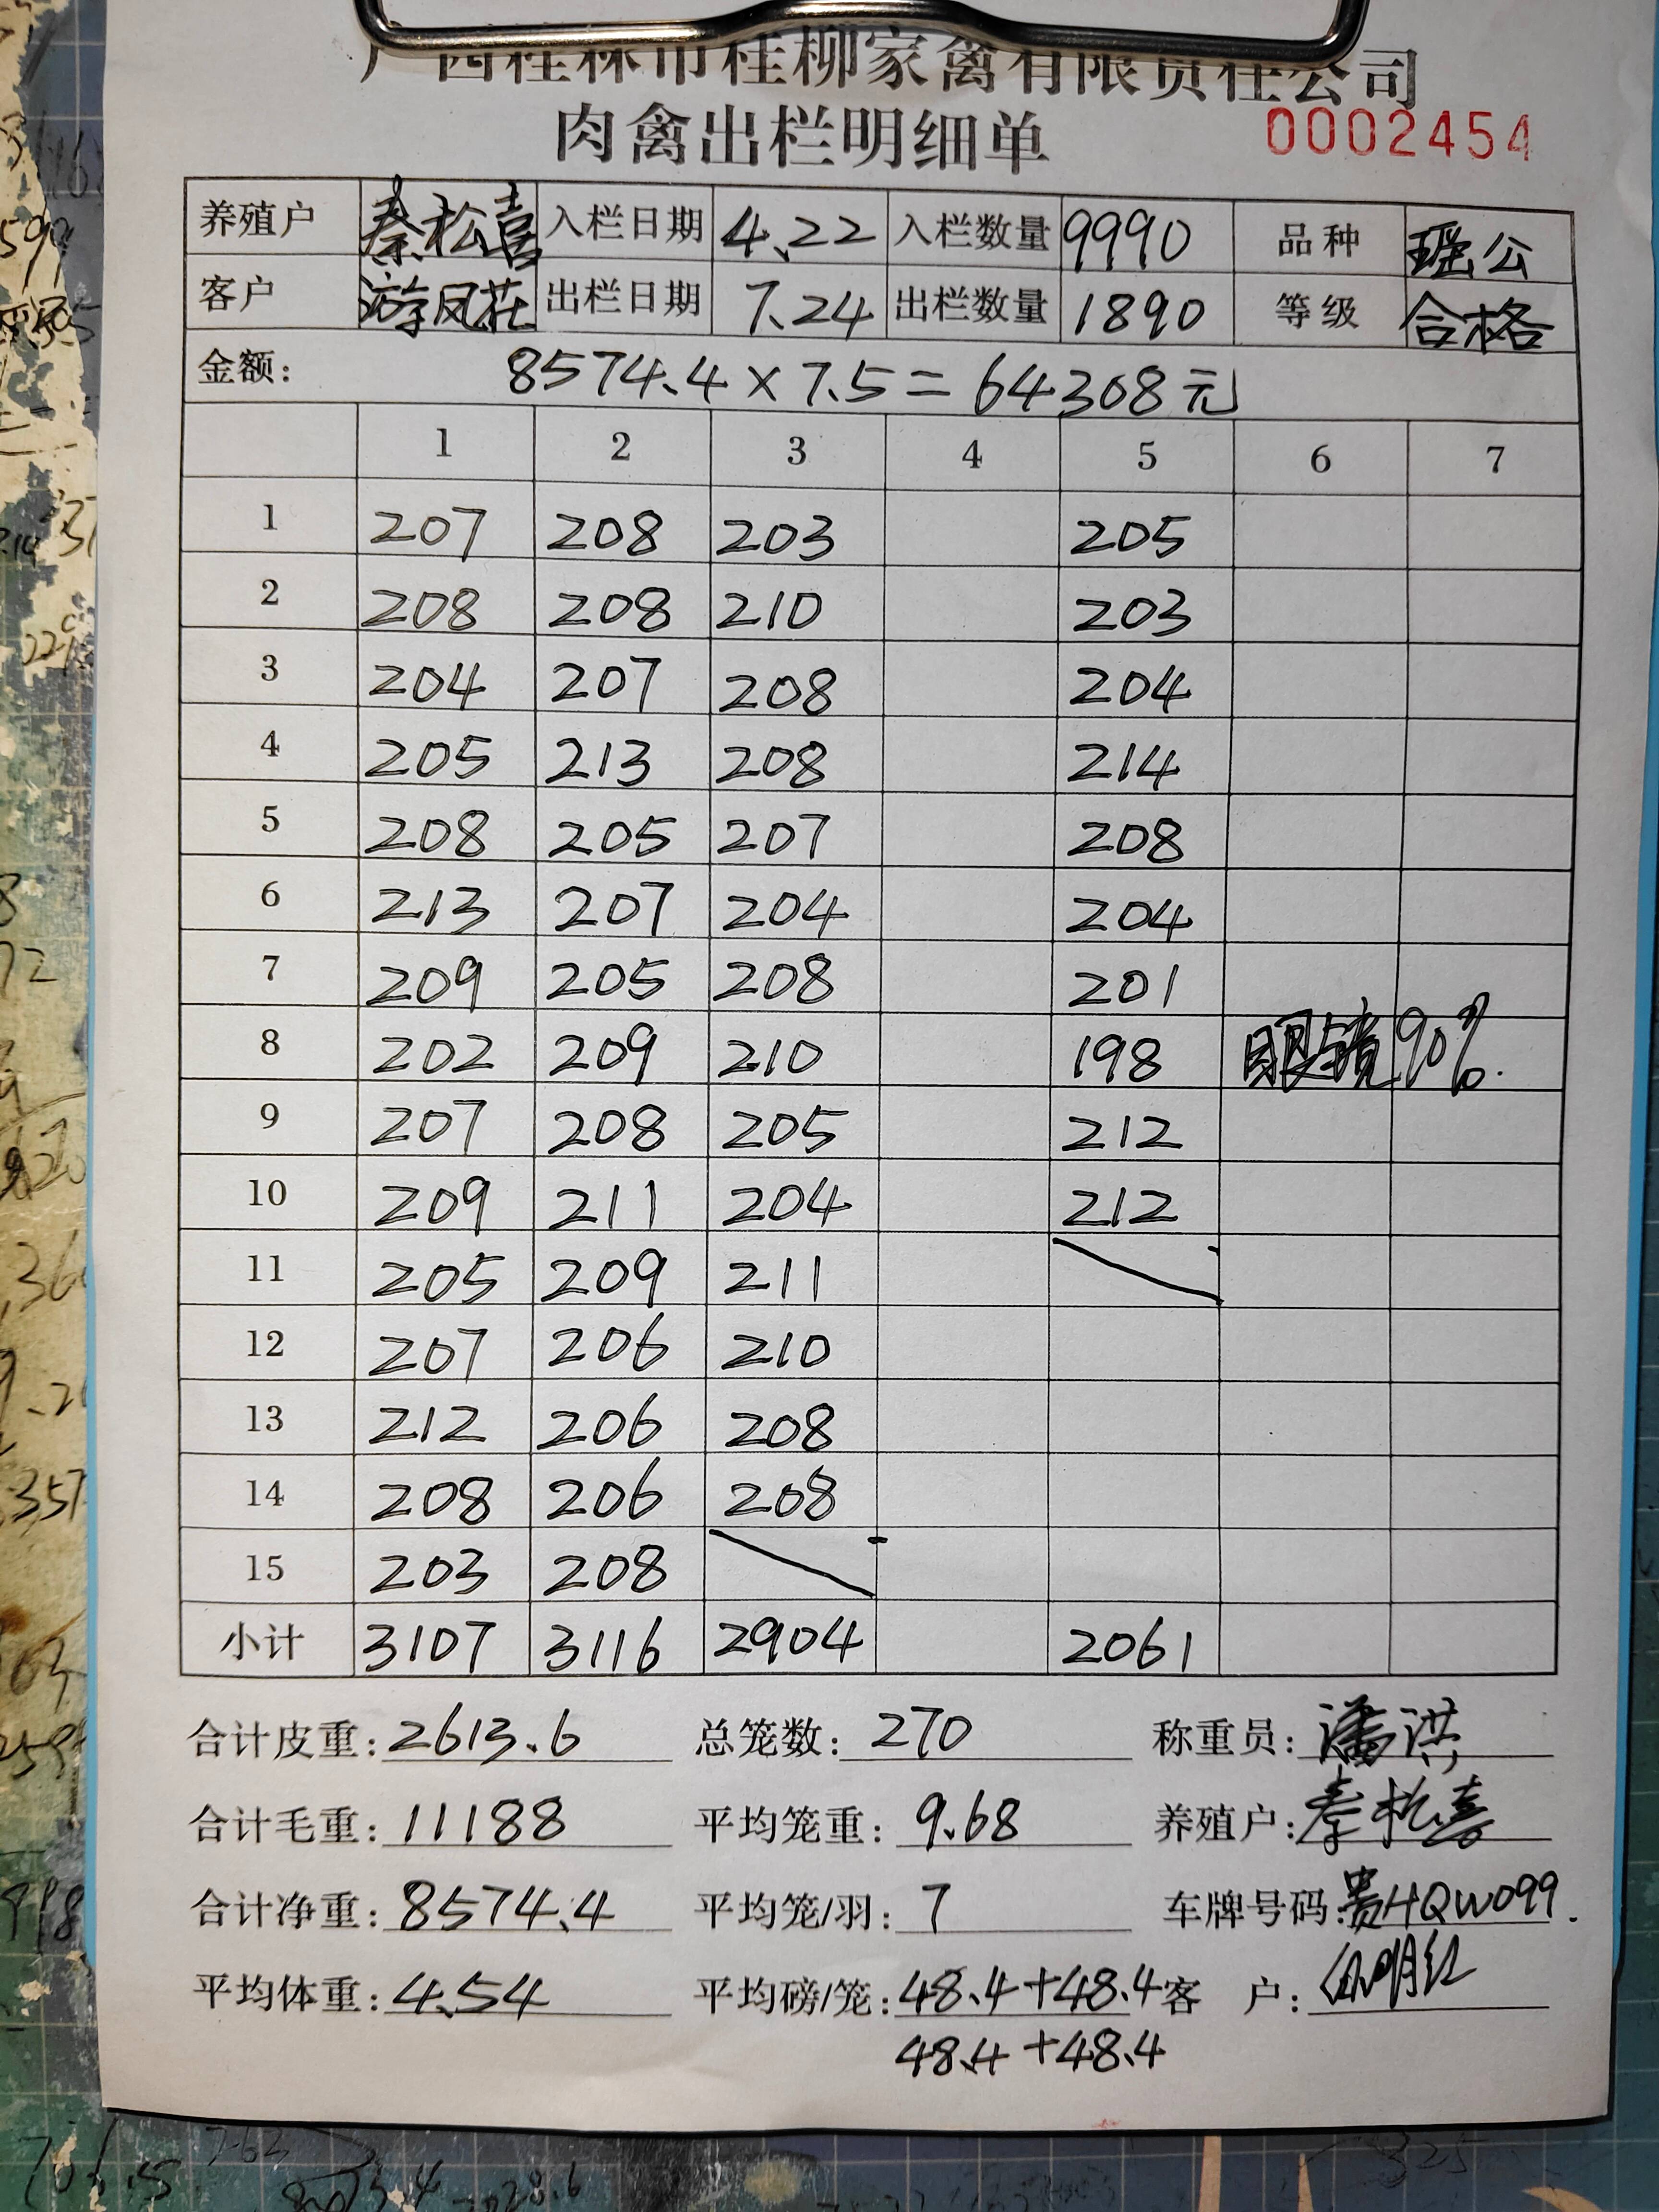 广西桂林市桂柳家禽有限责任公司
肉禽出栏明细单 0002454
养殖户 秦松喜 入栏日期 4.22 入栏数量 9990 品种 瑶公
客户 游凤花 出栏日期 7.24 出栏数量 1890 等级 合格
金额: 8574.4×7.5=64308元
1 2 3 4 5 6 7
1 207 208 203 205
2 208 208 210 203
3 204 207 208 204
4 205 213 208 214
5 208 205 207 208
6 213 207 204 204
7 209 205 208 201
8 202 209 210 198 眼镜90%.
9 207 208 205 212
10 209 211 204 212
11 205 209 211
12 207 206 210
13 212 206 208
14 208 206 208
15 203 208
小计 3107 3116 2904 2061
合计皮重: 2613.6 总笼数: 270 称重员: 潘洪
合计毛重: 11188 平均笼重: 9.68 养殖户: 秦松喜
合计净重: 8574.4 平均笼/羽: 7 车牌号码: 贵HQW099.
平均体重: 4.54 平均磅/笼: 48.4+48.4 客 户:
48.4+48.4